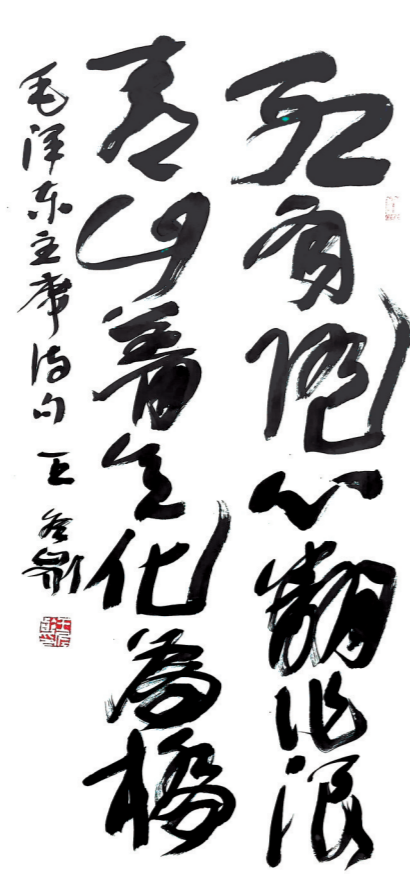 红雨随心翻作浪
青山着意化為橋
毛泽东主席诗句 王冬龄